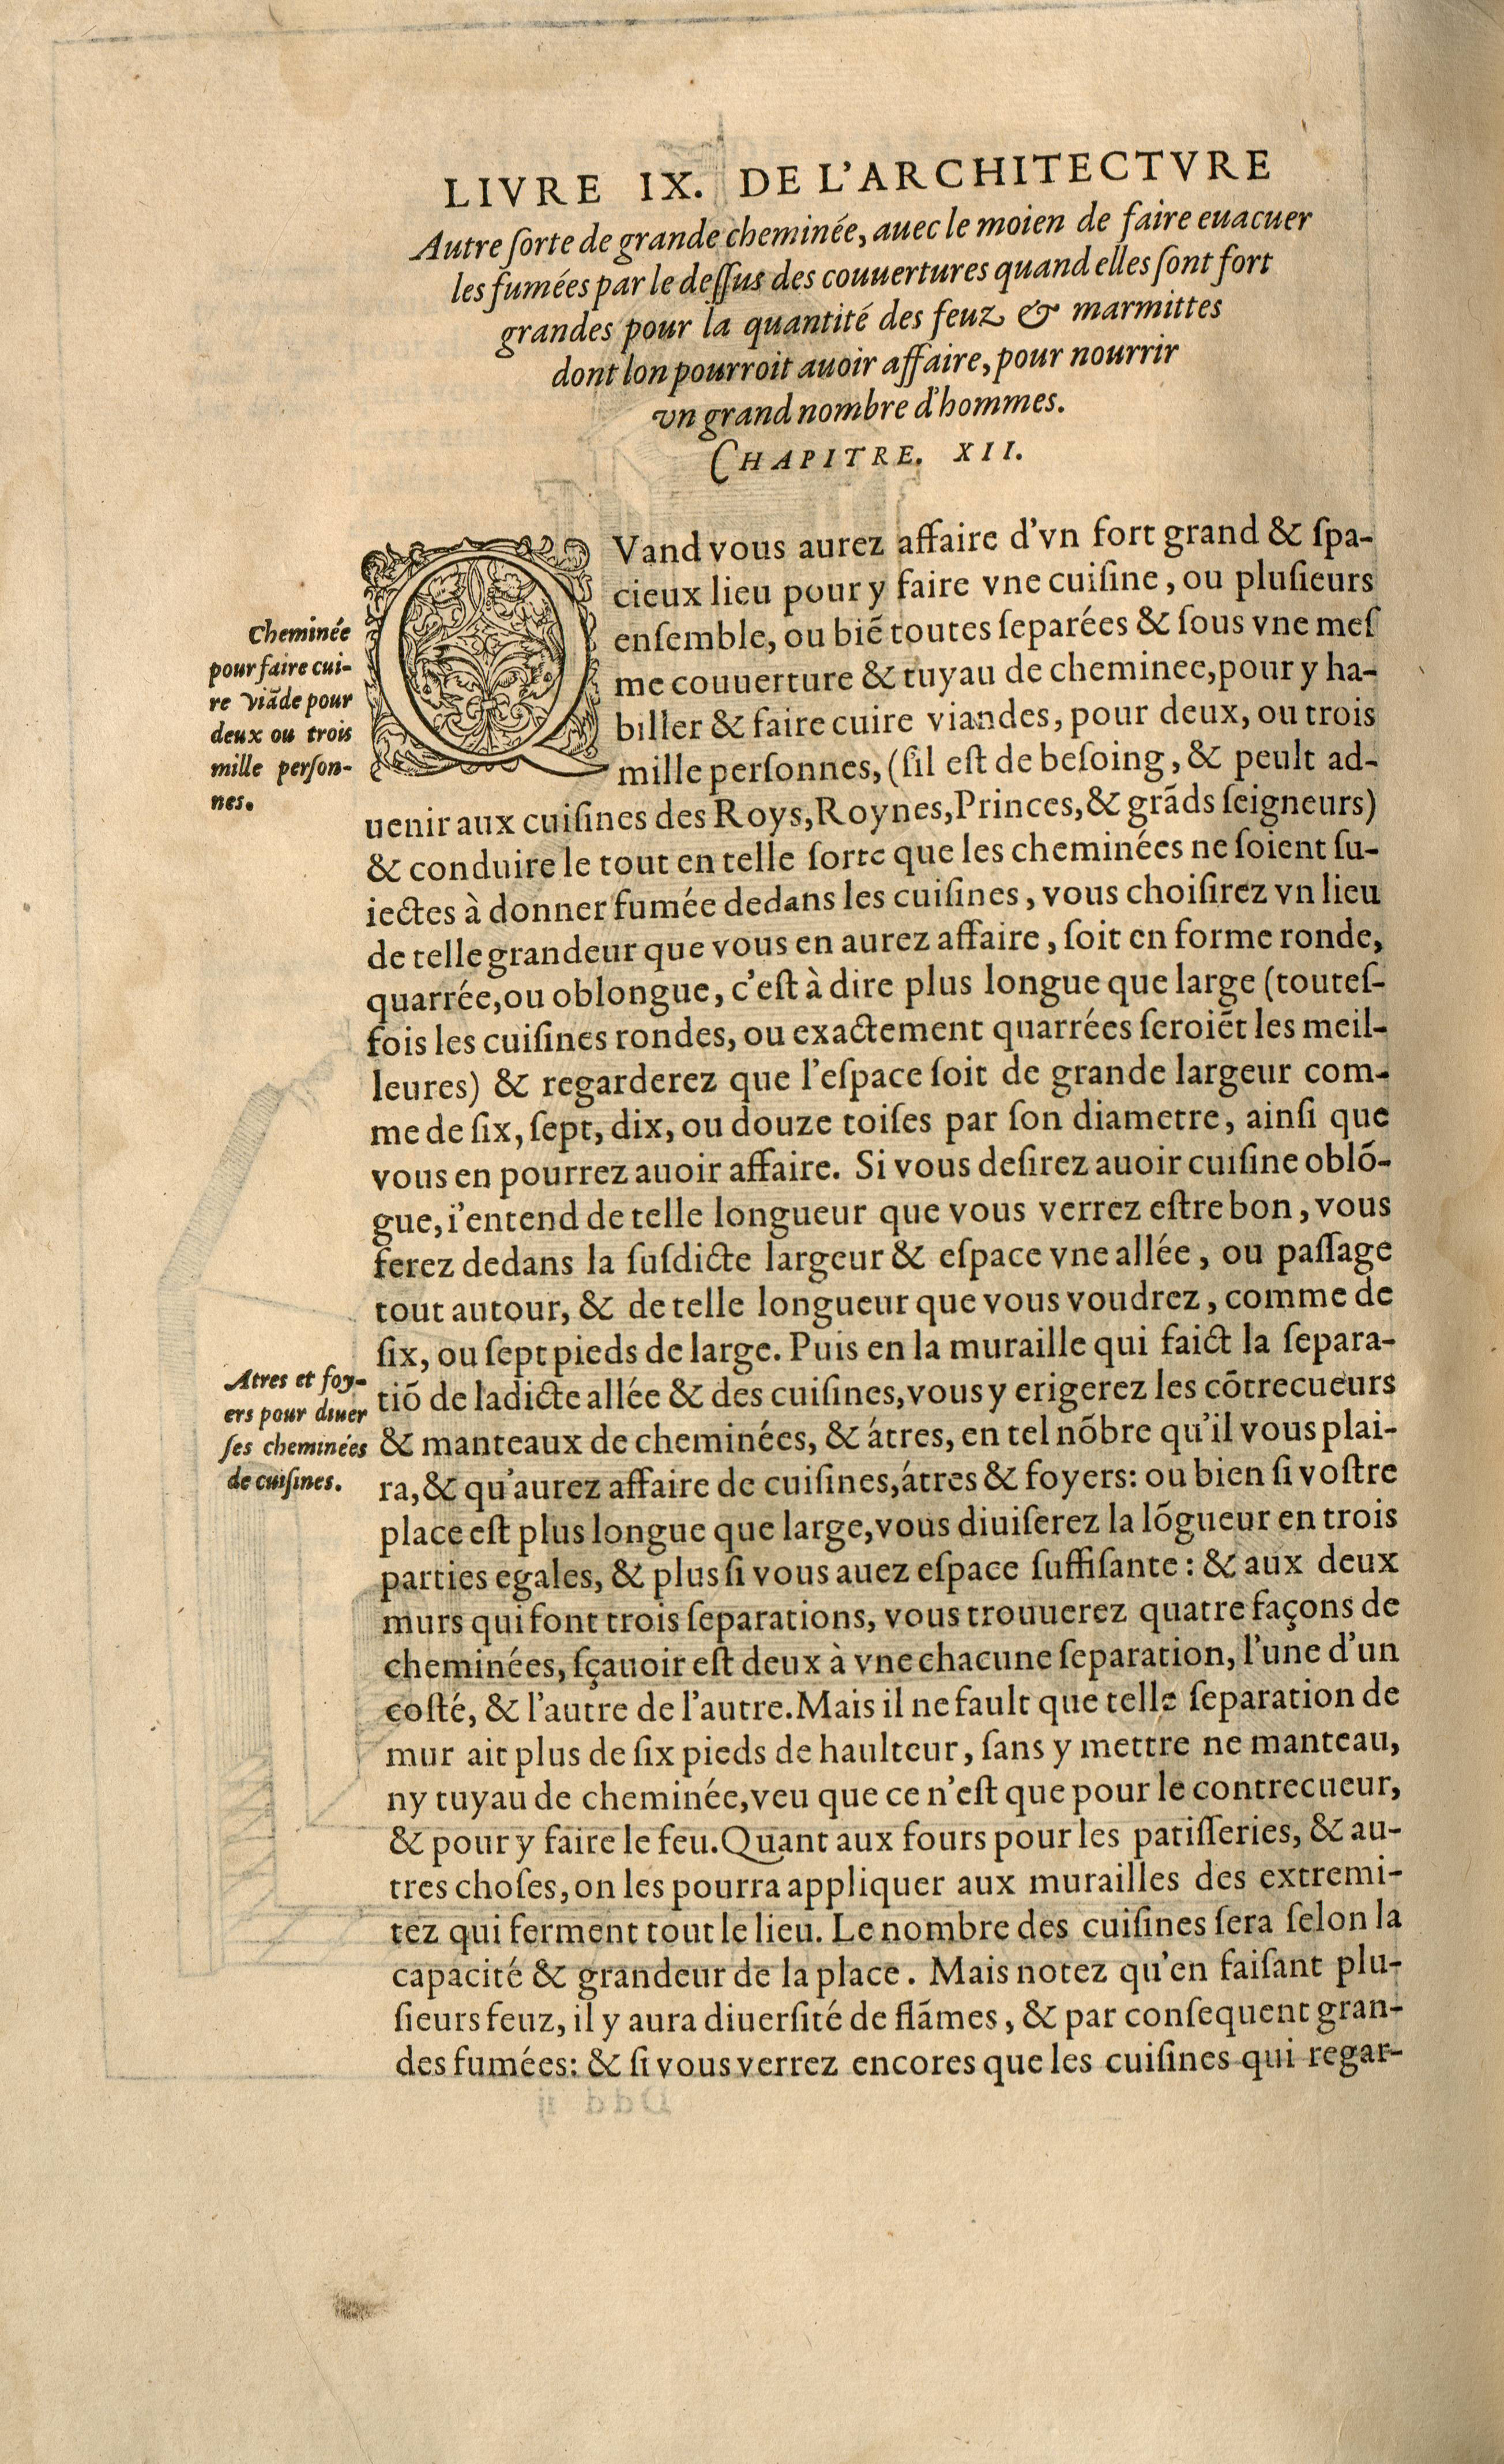 LIVRE IX. DE L'ARCHITECTVRE
Autre ſorte de grande cheminée, auec le moien de faire euacuer
les fumées par le deſſus des couuertures quand elles ſont fort
grandes pour la quantité des feuz & marmittes
dont lon pourroit auoir affaire, pour nourrir
vn grand nombre d'hommes.
CHAPITRE. XII.
QVand vous aurez affaire d'vn fort grand & ſpa-
cieux lieu pour y faire vne cuiſine, ou pluſieurs
enſemble, ou biē toutes ſeparées & ſous vne meſ
me couuerture & tuyau de cheminee, pour y ha-
biller & faire cuire viandes, pour deux, ou trois
mille perſonnes, (ſil eſt de beſoing, & peult ad-
uenir aux cuiſines des Roys, Roynes, Princes, & grãds ſeigneurs)
& conduire le tout en telle ſorte que les cheminées ne ſoient ſu-
iectes à donner fumée dedans les cuiſines, vous choiſirez vn lieu
de telle grandeur que vous en aurez affaire, ſoit en forme ronde,
quarrée, ou oblongue, c'eſt à dire plus longue que large (touteſ-
fois les cuiſines rondes, ou exactement quarrées ſeroiēt les meil-
leures) & regarderez que l'eſpace ſoit de grande largeur com-
me de ſix, ſept, dix, ou douze toiſes par ſon diametre, ainſi que
vous en pourrez auoir affaire. Si vous deſirez auoir cuiſine oblõ-
gue, i'entend de telle longueur que vous verrez eſtre bon, vous
ferez dedans la ſuſdicte largeur & eſpace vne allée, ou paſſage
tout autour, & de telle longueur que vous voudrez, comme de
ſix, ou ſept pieds de large. Puis en la muraille qui faict la ſepara-
tiõ de ladicte allée & des cuiſines, vous y erigerez les cõtrecueurs
& manteaux de cheminées, & átres, en tel nõbre qu'il vous plai-
ra, & qu'aurez affaire de cuiſines, átres & foyers: ou bien ſi voſtre
place eſt plus longue que large, vous diuiſerez la lõgueur en trois
parties egales, & plus ſi vous auez eſpace ſuffiſante: & aux deux
murs qui font trois ſeparations, vous trouuerez quatre façons de
cheminées, ſçauoir eſt deux à vne chacune ſeparation, l'une d'un
coſté, & l'autre de l'autre. Mais il ne fault que telle ſeparation de
mur ait plus de ſix pieds de haulteur, ſans y mettre ne manteau,
ny tuyau de cheminée, veu que ce n'eſt que pour le contrecueur,
& pour y faire le feu. Quant aux fours pour les patiſſeries, & au-
tres choſes, on les pourra appliquer aux murailles des extremi-
tez qui ferment tout le lieu. Le nombre des cuiſines ſera ſelon la
capacité & grandeur de la place. Mais notez qu'en faiſant plu-
ſieurs feuz, il y aura diuerſité de flãmes, & par conſequent gran-
des fumées: & ſi vous verrez encores que les cuiſines qui regar-
Cheminée
pour faire cui-
re viãde pour
deux ou trois
mille perſon-
nes.
Atres et foy-
ers pour diuer
ſes cheminées
de cuiſines.